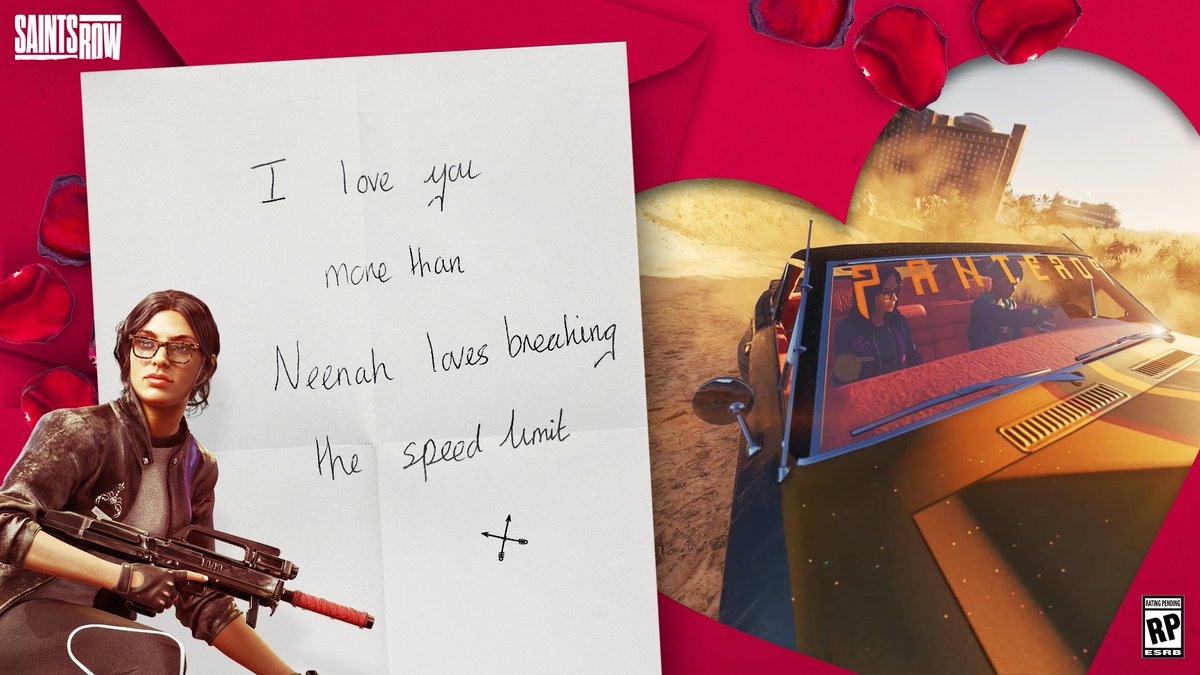 SAINTS ROW
I love you
more than
Neenah loves breaking
the speed limit
PANTEROS
RATING PENDING
RP
ESRB